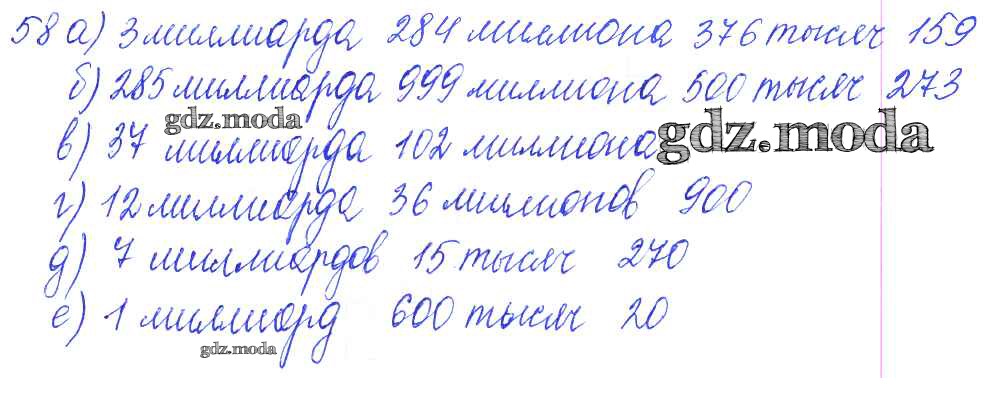 58 а) 3 миллиарда 284 миллиона 376 тысяч 159
б) 285 миллиарда 999 миллиона 500 тысяч 273
gdz.moda
в) 37 миллиарда 102 миллиона gdz.moda
г) 12 миллиарда 36 миллионов 900
д) 7 миллиардов 15 тысяч 270
е) 1 миллиард 600 тысяч 20
gdz.moda